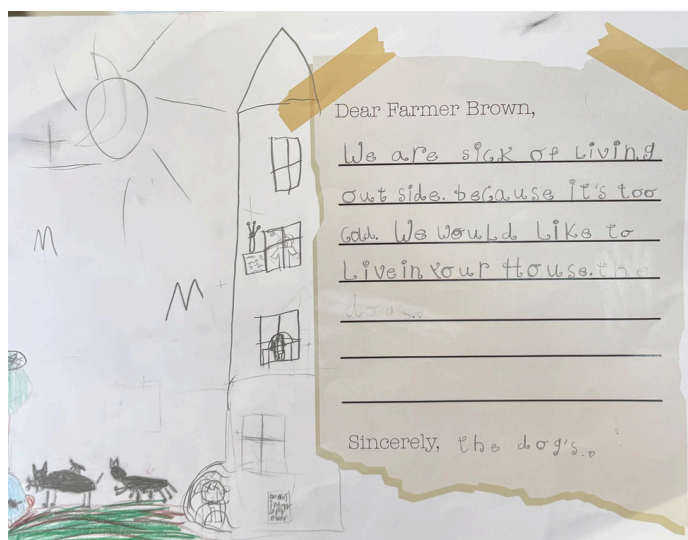 Dear Farmer Brown,
We are sick of Living
out side. because it's too
cold. We would Like to
Live in Your House. the
dogs.
Sincerely, the dog's.